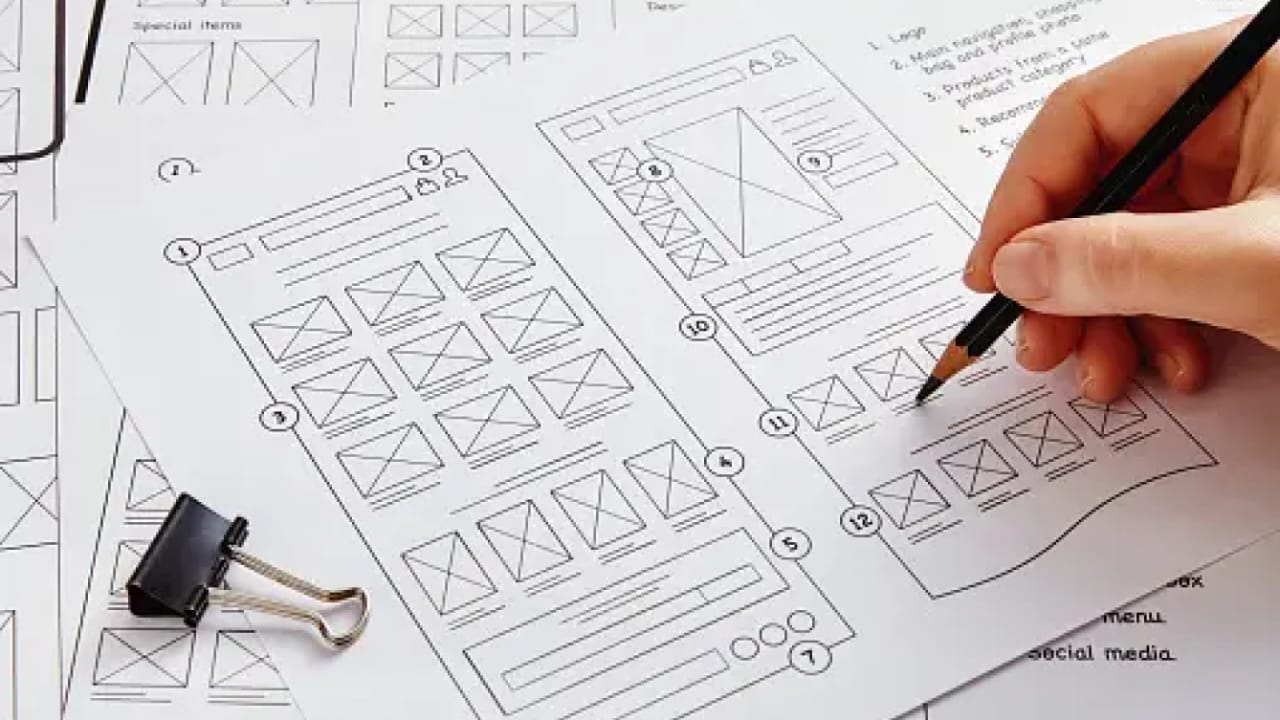 Special items
1. Logo
2. Main navigation, shopping
bag and profile photo
3. Products from a same
product category
4.
5.
1
2
3
4
5
7
8
9
10
11
12
menu
Social media